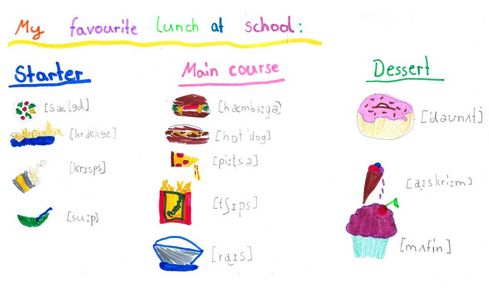 My favourite lunch at school:
Starter
[sæ'ləd]
[krɪsps]
[su:p]
Main course
[hæmbɜːgə]
[hot'dog]
[pi:tsə]
[tʃɪps]
[raɪs]
Dessert
[dəʊnʌt]
[aɪskri:m]
[mʌfin]